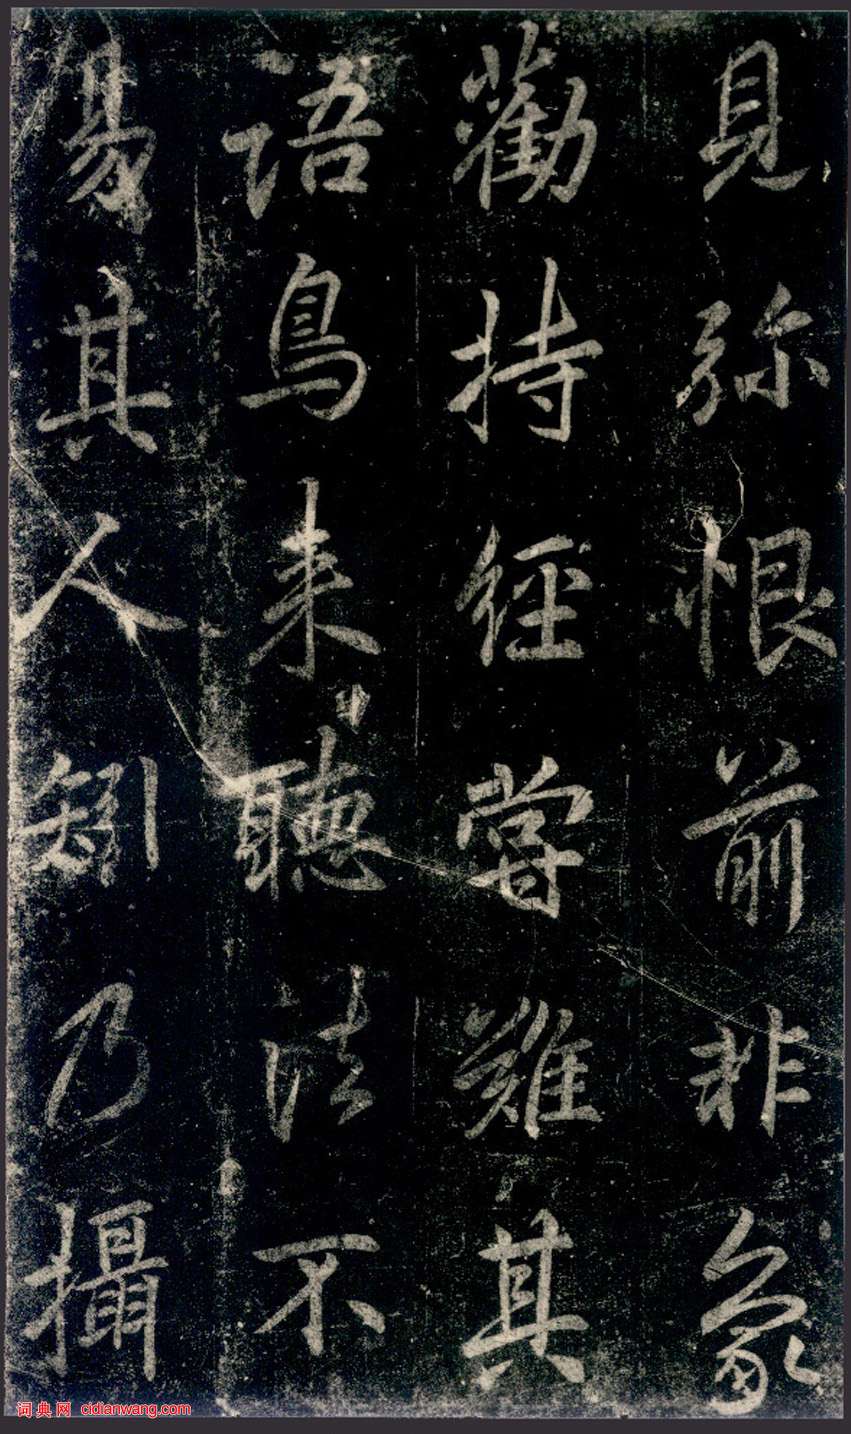 見弥恨前非象
勸持經嘗難其
語鳥来聽法不
易其人矧乃攝
词典网 cidianwang.com